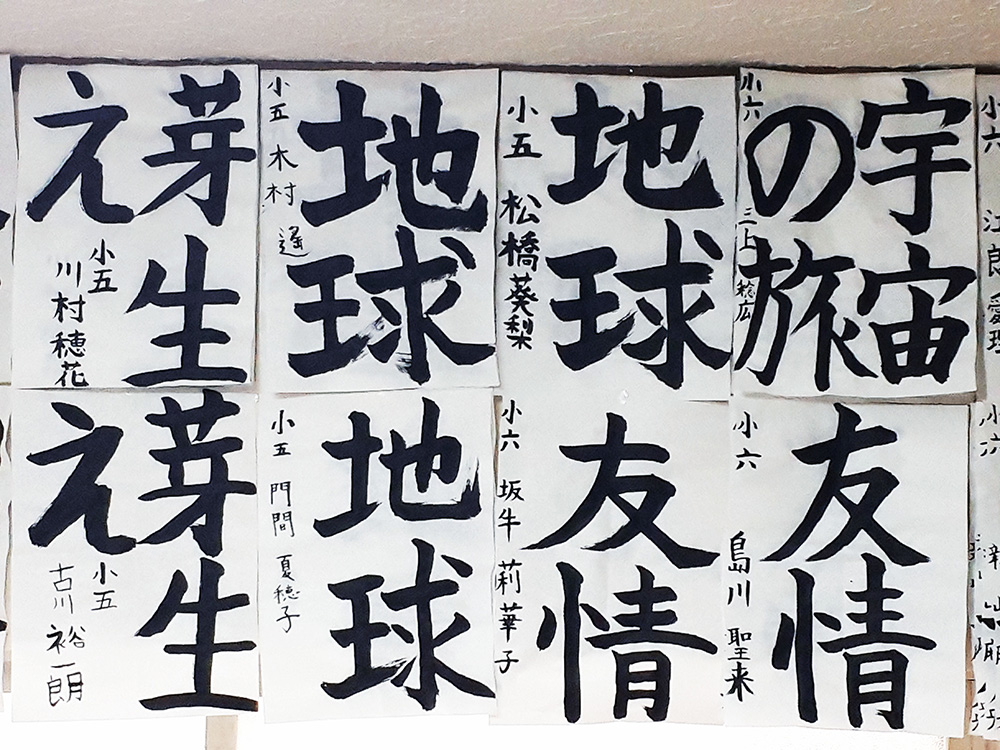 小六
宇宙
の旅
小六 三上 稔広
地球
小五 松橋葵梨
地球
小五 木村 遥
芽生
え
小五
川村穂花
友情
小六 島川 聖来
友情
小六 坂牛 莉華子
地球
小五 門間 夏穂子
芽生
え
小五
古川 裕一朗